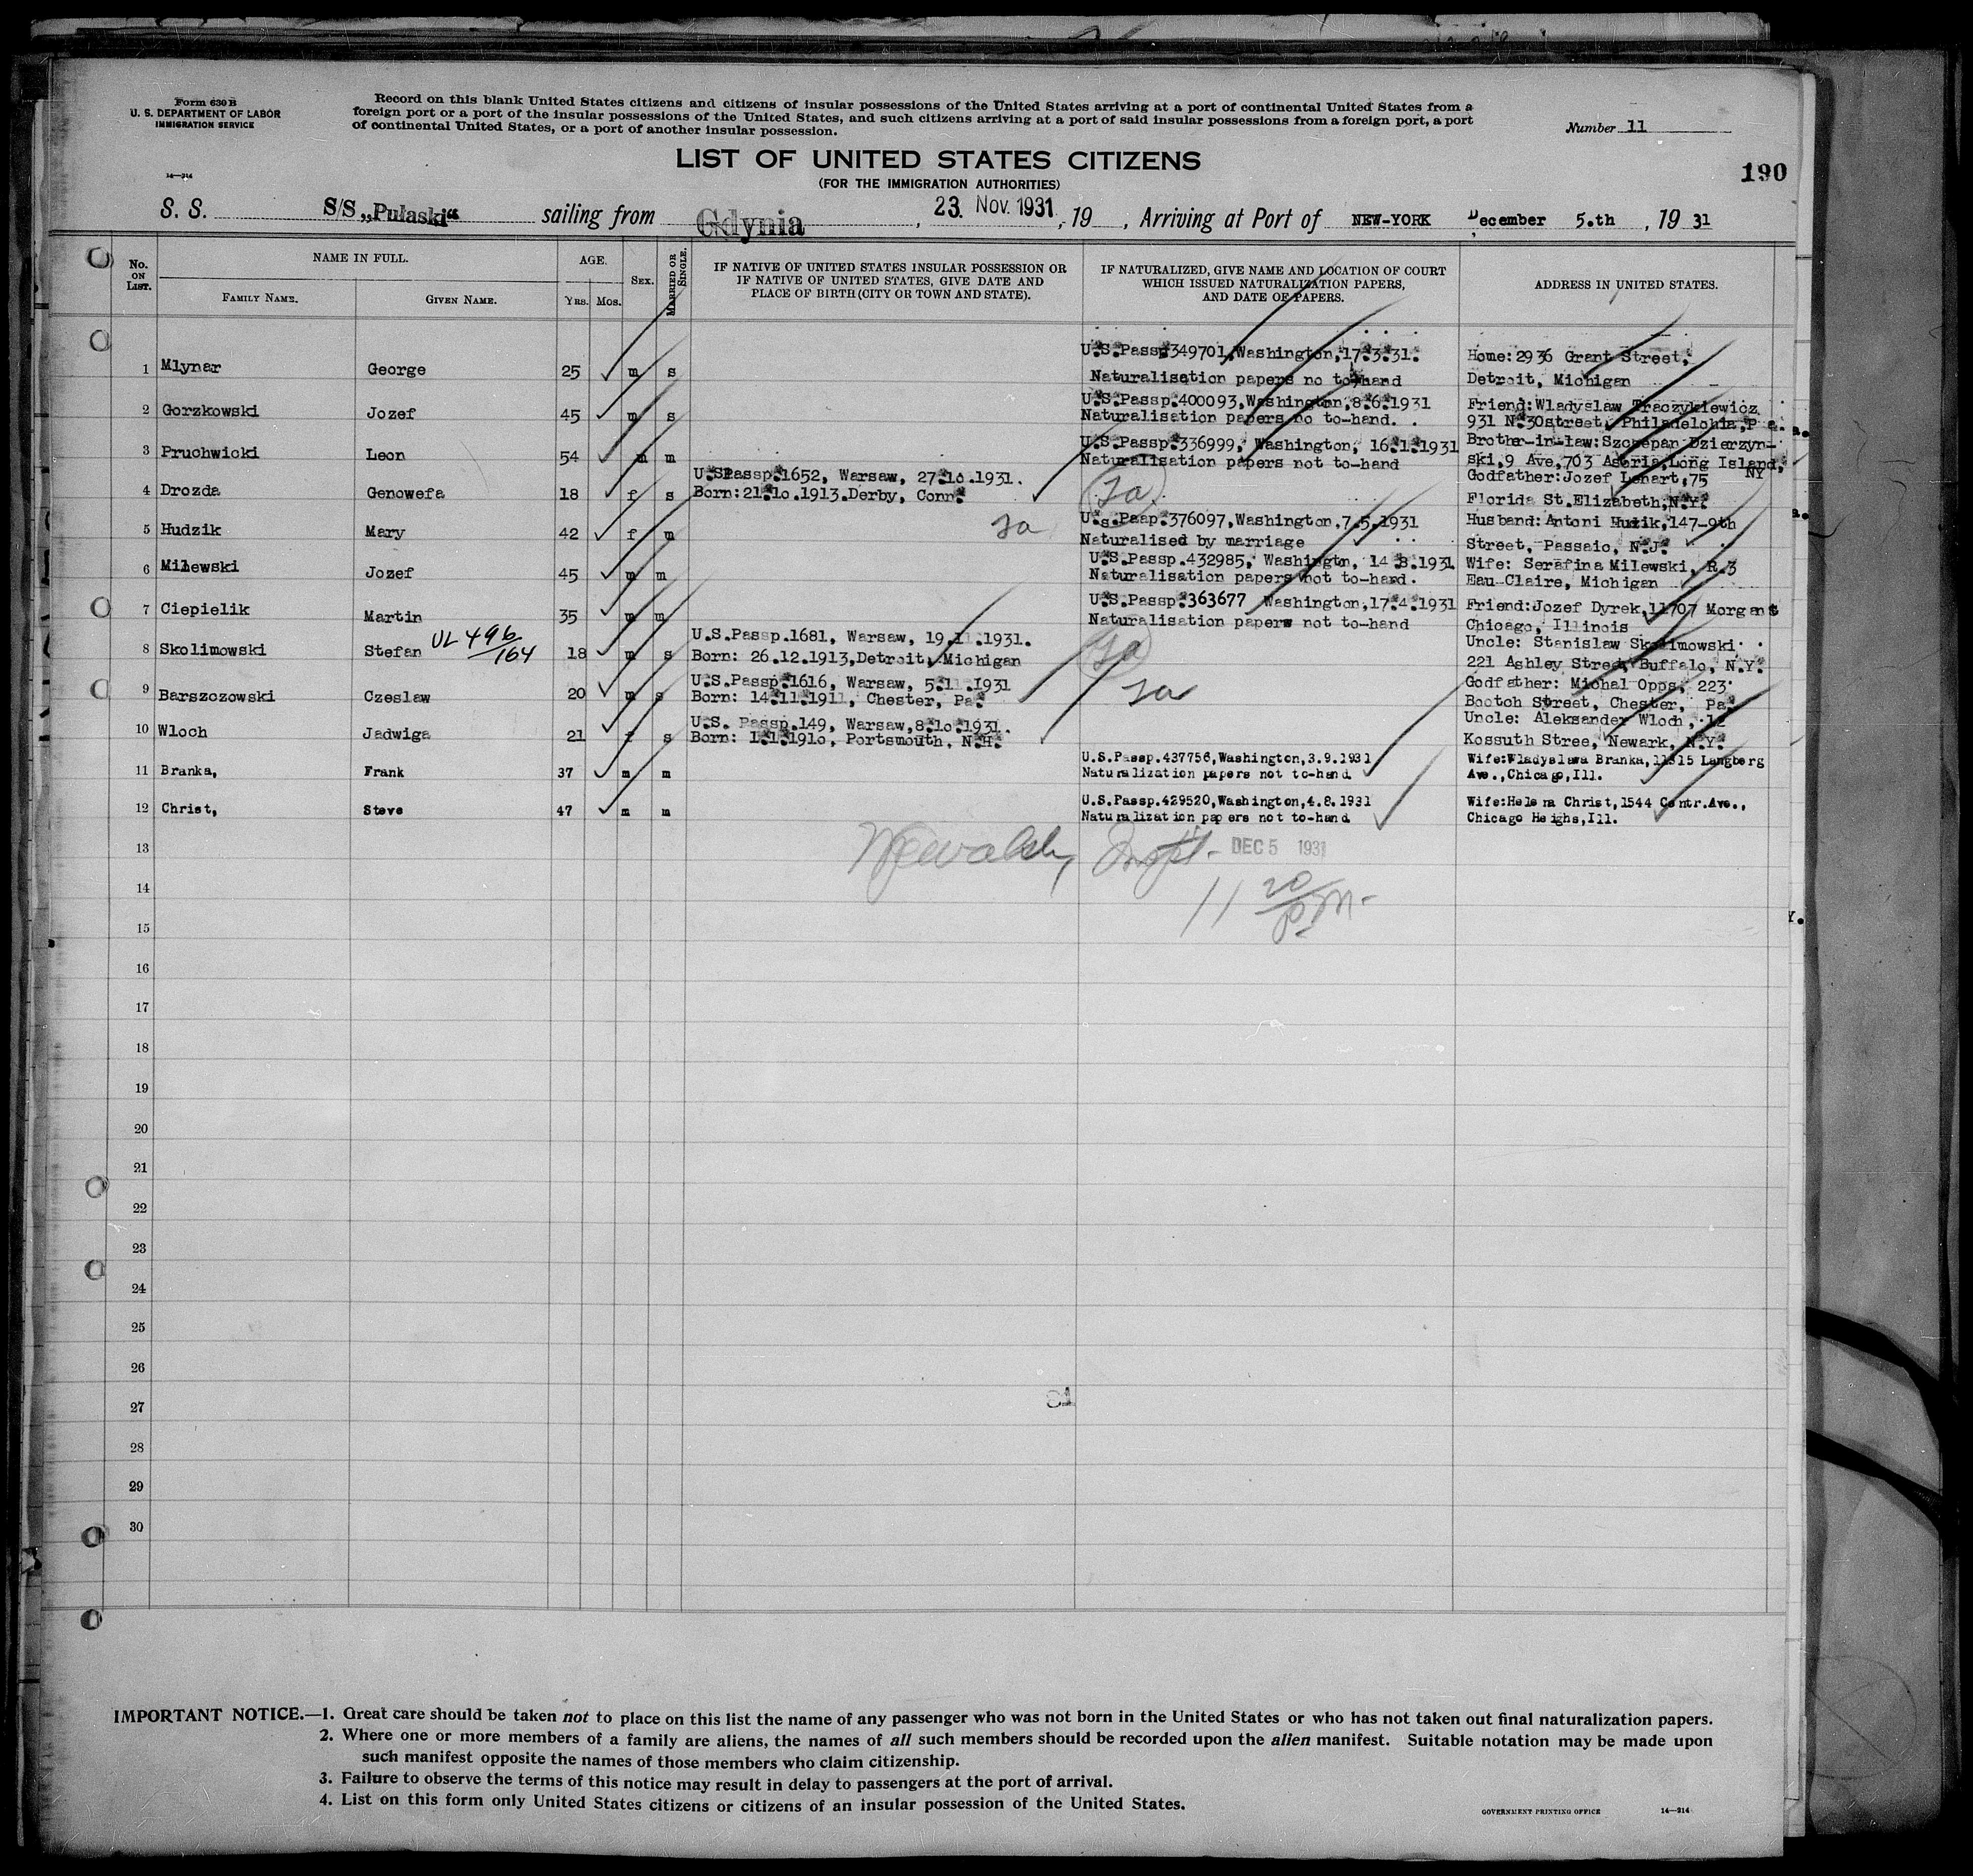 Form 630 B
U. S. DEPARTMENT OF LABOR
IMMIGRATION SERVICE
Record on this blank United States citizens and citizens of insular possessions of the United States arriving at a port of continental United States from a
foreign port or a port of the insular possessions of the United States, and such citizens arriving at a port of said insular possessions from a foreign port, a port
of continental United States, or a port of another insular possession.
Number 11
LIST OF UNITED STATES CITIZENS
(FOR THE IMMIGRATION AUTHORITIES)
14—214
190
S. S. S/S „Pułaski“ sailing from Gdynia, 23. Nov. 1931, 19 , Arriving at Port of NEW-YORK December 5.th, 19 31
No. ON LIST.
NAME IN FULL.
FAMILY NAME.
GIVEN NAME.
AGE.
YRS. MOS.
SEX.
MARRIED OR SINGLE.
IF NATIVE OF UNITED STATES INSULAR POSSESSION OR
IF NATIVE OF UNITED STATES, GIVE DATE AND
PLACE OF BIRTH (CITY OR TOWN AND STATE).
IF NATURALIZED, GIVE NAME AND LOCATION OF COURT
WHICH ISSUED NATURALIZATION PAPERS,
AND DATE OF PAPERS.
ADDRESS IN UNITED STATES.
1 Mlynar George 25 m s U.S.Passp.349701,Washington,17.3.31. Home:2936 Grant Street,
Naturalisation papers no to-hand Detroit, Michigan
2 Gorzkowski Jozef 45 m s U.S.Passp.400093,Washington,8.6.1931 Friend:Wladyslaw Traczykiewicz
Naturalisation papers no to-hand. 931 N.30street, Philadelchia,Pa.
3 Pruchwicki Leon 54 m m U.S.Passp.336999, Washington, 16.1.1931 Brother-in-law:Szczepan Dzierzyn-
Naturalisation papers not to-hand ski,9 Ave,703 Astria,Long Island, NY
4 Drozda Genowefa 18 f s U.S.Passp.1652, Warsaw, 27.10.1931. Godfather:Jozef Lenart,75
Born:21.10.1913.Derby, Conn. Florida St.Elizabeth,N.Y.
5 Hudzik Mary 42 f m U.S.Paap.376097,Washington,7.5.1931 Husband:Antoni Hudzik,147-9th
Naturalised by marriage Street, Passaic, N.J.
6 Milewski Jozef 45 m m U.S.Passp.432985, Washington, 14.8.1931 Wife: Serafina Milewski, R.3
Naturalisation papers not to-hand. Eau-Claire, Michigan
7 Ciepielik Martin 35 m m U.S.Passp.363677 Washington,17.4.1931 Friend:Jozef Dyrek,11707 Morgan
Naturalisation papers not to-hand Chicago, Illinois
UL 496/164
8 Skolimowski Stefan 18 m s U.S.Passp.1681, Warsaw, 19.11.1931. Uncle: Stanislaw Skolimowski
Born: 26.12.1913,Detroit, Michigan 221 Ashley Street, Buffalo, N.Y.
9 Barszczowski Czeslaw 20 m s U.S.Passp.1616, Warsaw, 5.11.1931 Godfather: Michal Opps, 223
Born: 14.11.1911, Chester, Pa. Bootch Street, Chester, Pa.
10 Wloch Jadwiga 21 f s U.S. Passp.149, Warsaw,8.10.1931. Uncle: Aleksander Wloch, 12
Born: 1.1.1910, Portsmouth, N.H. Kossuth Stree, Newark, N.Y.
11 Branka, Frank 37 m m U.S.Passp.437756,Washington,3.9.1931 Wife:Wladyslawa Branka,11315 Langberg
Naturalization papers not to-hand Ave.,Chicago,Ill.
12 Christ, Steve 47 m m U.S.Passp.429520,Washington,4.8.1931 Wife:Helena Christ,1544 Centr.Ave.,
Naturalization papers not to-hand Chicago Heighs,Ill.
13
DEC 5 1931
14
11 20/pm
15
16
17
18
19
20
21
22
23
24
25
26
27
28
29
30
IMPORTANT NOTICE.—1. Great care should be taken not to place on this list the name of any passenger who was not born in the United States or who has not taken out final naturalization papers.
2. Where one or more members of a family are aliens, the names of all such members should be recorded upon the alien manifest. Suitable notation may be made upon
such manifest opposite the names of those members who claim citizenship.
3. Failure to observe the terms of this notice may result in delay to passengers at the port of arrival.
4. List on this form only United States citizens or citizens of an insular possession of the United States.
GOVERNMENT PRINTING OFFICE 14—214